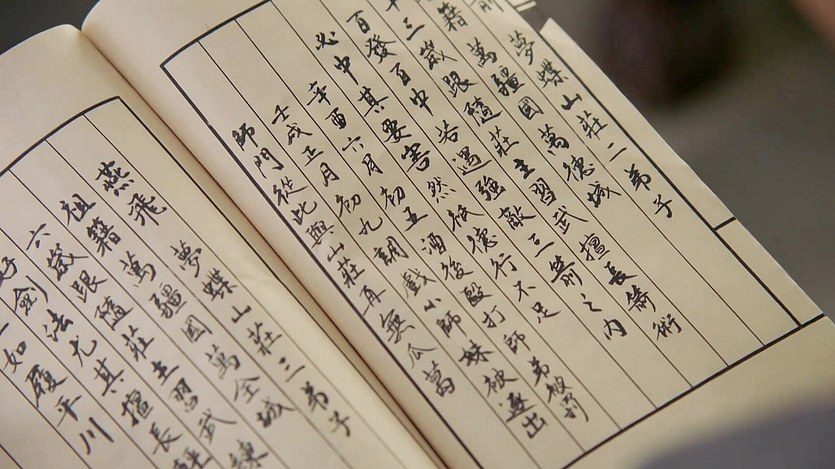 前 夢蝶山莊二弟子
籍萬疆國萬德城
十三歲跟隨莊主習武擅長箭術
百發百中若遇強敵三箭之內
必中其要害然祗德行不足
辛酉六月初五酒後毆打師弟被罰
壬戌正月初九調戲小師妹被逐出
師門從此與山莊再無瓜葛
燕飛 夢蝶山莊三弟子
祖籍萬疆國萬全城
六歲跟隨莊主習武練
好劍法尤其擅長輕
如履平川